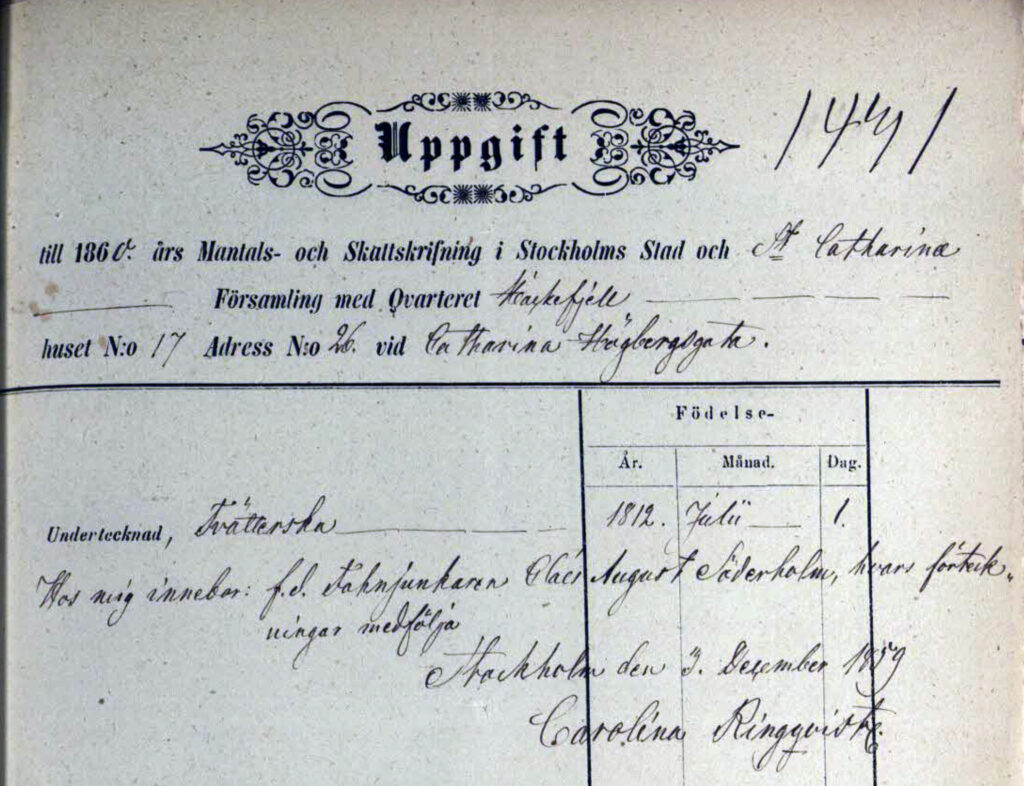 Uppgift
1471
till 1860. års Mantals- och Skattskrifning i Stockholms Stad och St Catharina
Församling med Qvarteret
huset N:o 17 Adress N:o 26. vid Catharina Högbergsgata.
Födelse-
År. Månad. Dag.
Undertecknad, Tvätterska 1812. Julii 1.
Hos mig innebor: f.d. Fahnjunkaren Claes August Söderholm, hvars förteck-
ningar medfölja
Stockholm den 3. December 1859
Carolina Ringqvist